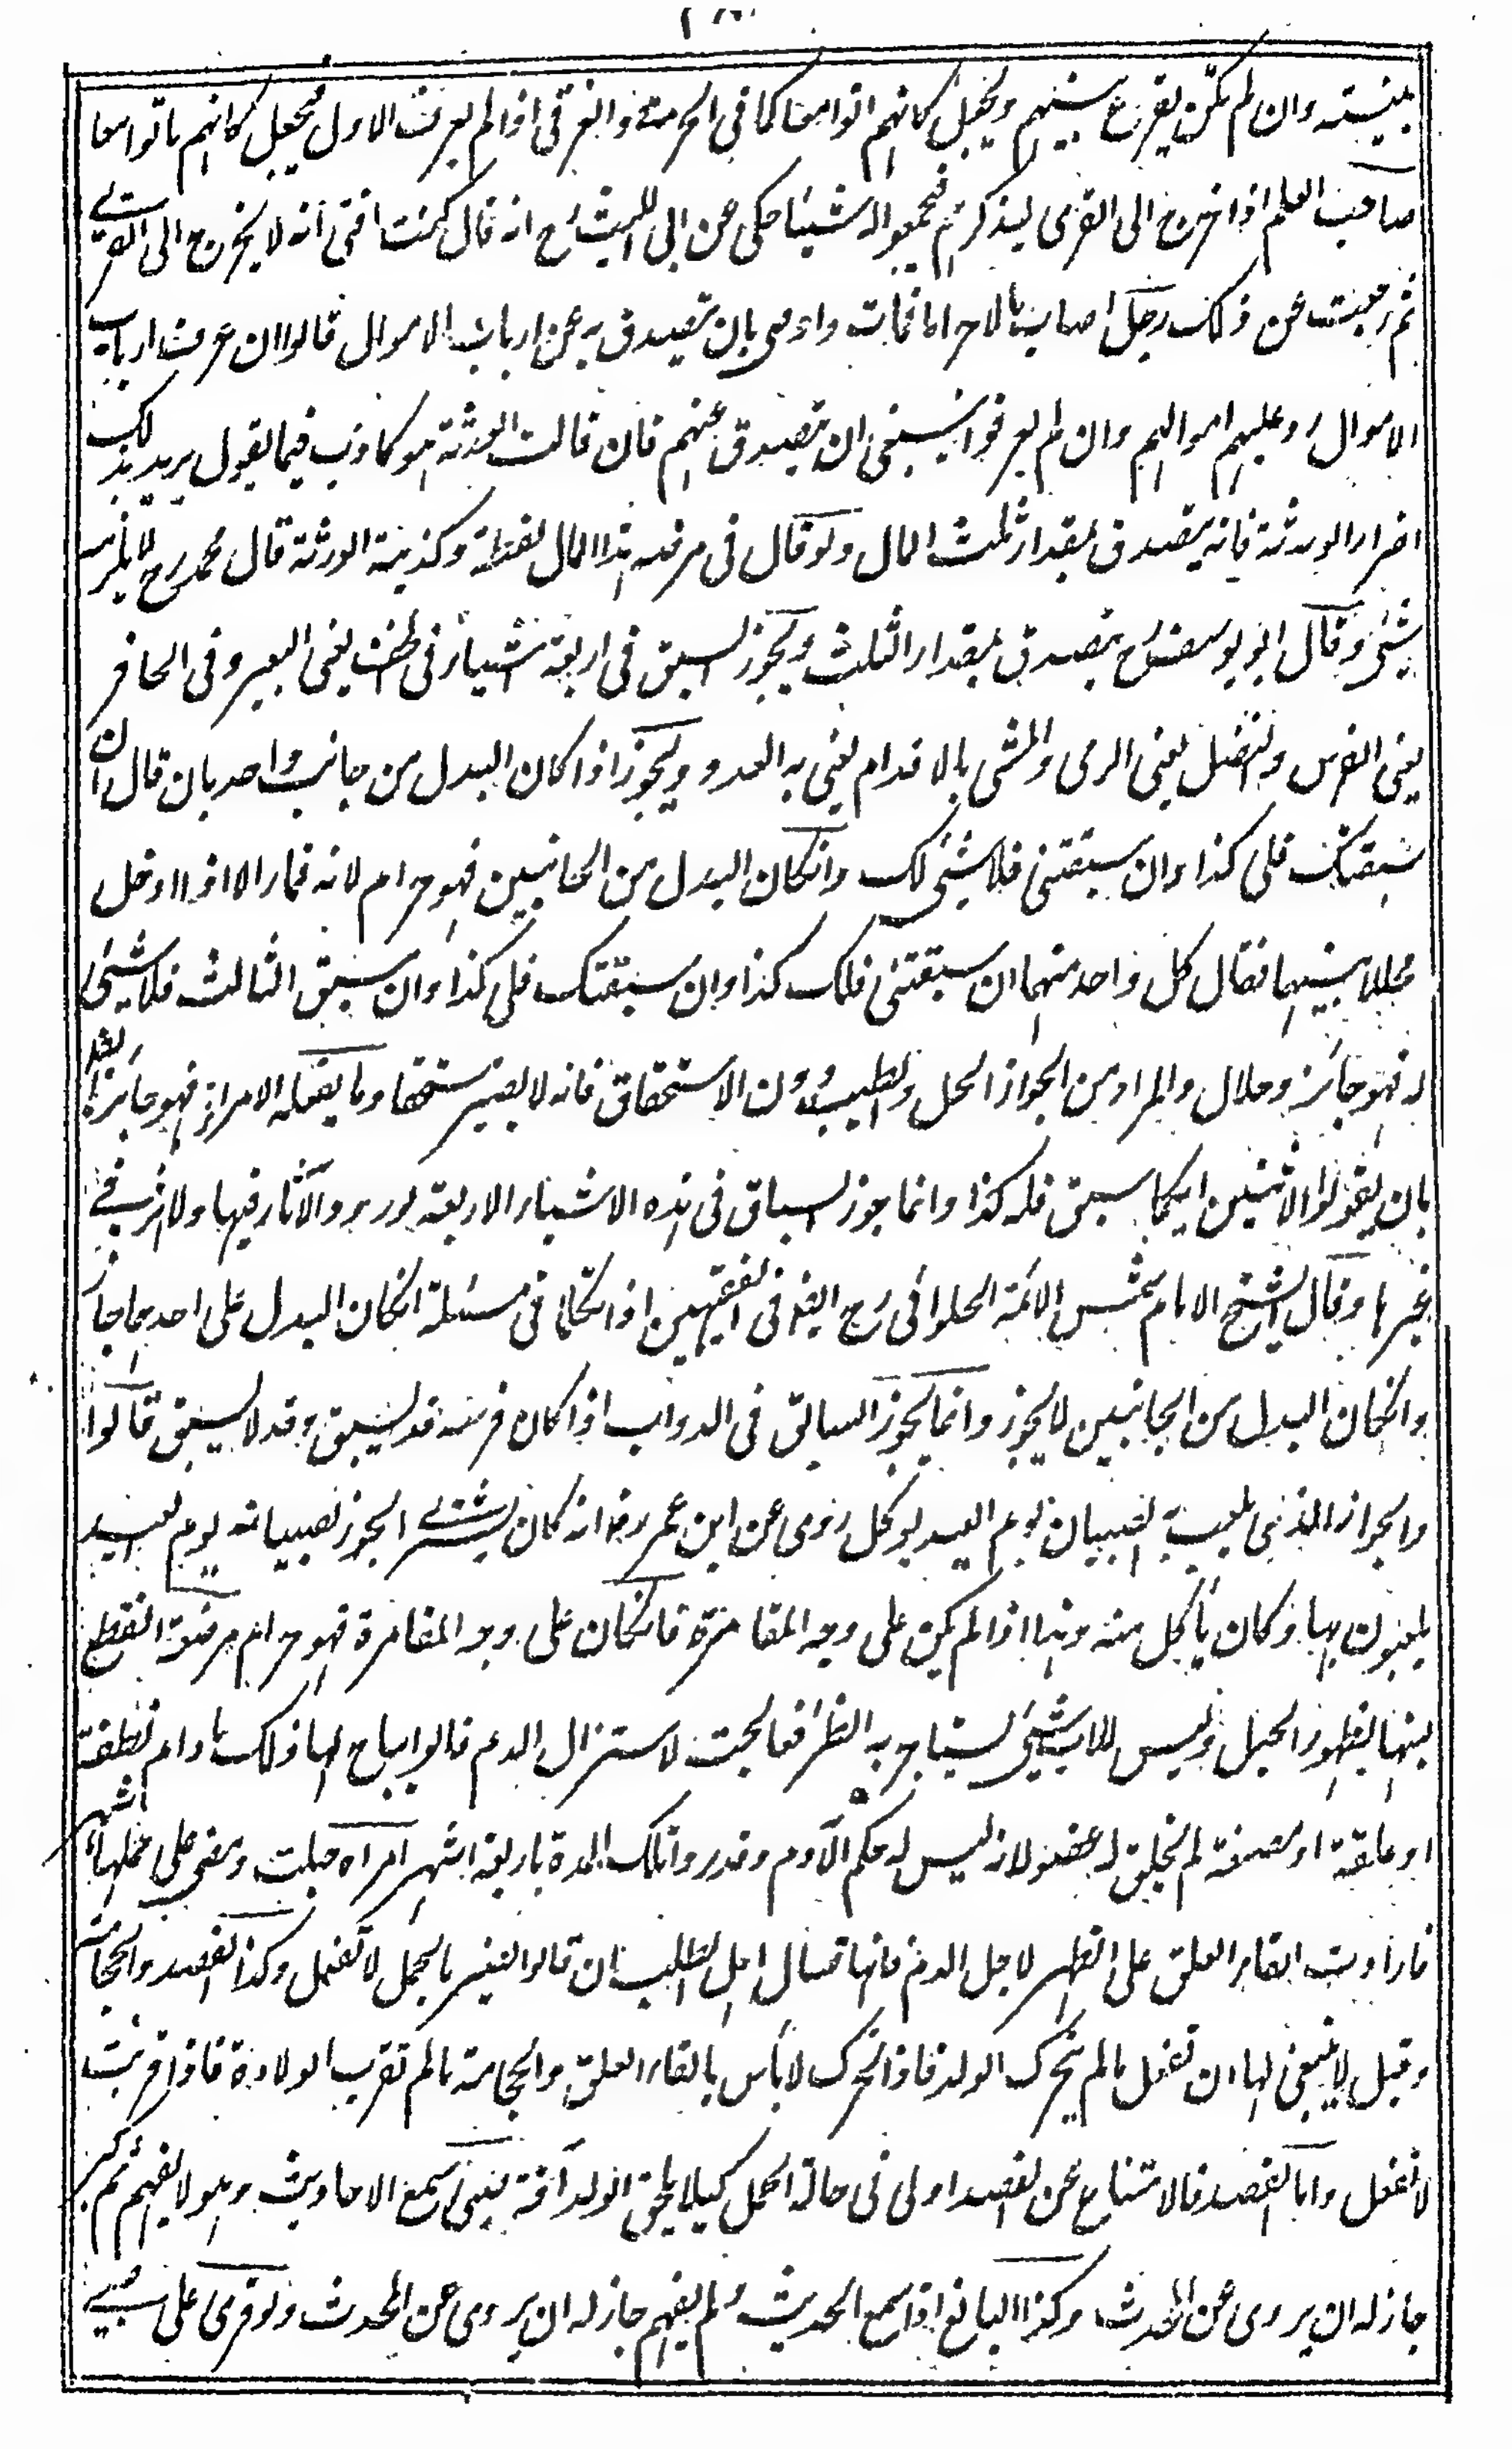 ببينته وان لم يكن يقرع بينهم ويجعل كانهم اتوا معا كما في الحرقى والغرقى اذا لم يعرف الاول يجعل كانهم ماتوا معا
صاحب العلم اذا خرج الى القرى ليذكرهم فيجمعوا له شيئا حكى عن ابى الليث رح انه قال كنت افتى انه لا يخرج الى القرى
ثم رجعت عن ذلك رجل اصاب مالا حراما فمات واوصى بان يتصدق به عن ارباب الاموال قالوا ان عرف ارباب
الاموال رد عليهم اموالهم وان لم يعرفوا ينبغى ان يتصدق عنهم فان قالت الورثة هو كاذب فيما يقول يريد بذلك
اضرار الورثة فانه يتصدق بمقدار ثلث المال ولو قال فى مرضه هذا المال لقطة وكذبته الورثة قال محمد رح لا يلزمه
شئ وقال ابو يوسف رح يتصدق بمقدار الثلث ويجوز السبق فى اربعة اشياء فى الخف يعنى البعير وفى الحافر
يعنى الفرس والنضل يعنى الرمى والمشى بالاقدام يعنى به العدو ويجوز اذا كان البدل من جانب واحد بان قال ان
سبقتك فلى كذا وان سبقتنى فلا شئ لك وانكان البدل من الجانبين فهو حرام لانه قمار الا اذا ادخل
محللا بينهما فقال كل واحد منهما ان سبقتنى فلك كذا وان سبقتك فلى كذا وان سبق الثالث فلا شئ
له فهو جائز وحلال والمراد من الجواز الحل والطيب دون الاستحقاق فانه لا يصير مستحقا وما يفعله الامراء فهو جائز ايضا
بان يقولوا لاثنين ايكما سبق فله كذا وانما جوز السباق فى هذه الاشياء الاربعة لورود الآثار فيها ولا اثر فى
غيرها وقال الشيخ الامام شمس الائمة الحلوائى رح ايضا فى الفقيهين اذا تكلما فى مسئلة انكان البدل على احدهما جاز
وانكان البدل من الجانبين لا يجوز وانما يجوز السباق فى الدواب اذا كان فرسه قد يسبق وقد لا يسبق قالوا
والجواز الذى يلعب به الصبيان يوم العيد يوكل روى عن ابن عمر رض انه كان يشترى الجوز لصبيانه يوم العيد
يلعبون بها وكان يأكل منه وهذا اذا لم يكن على وجه المقامرة فانكان على وجه المقامرة فهو حرام مرضعة انقطع
لبنها بظهور الحبل وليس للاب شئ يستاجر به الظئر فعالجت لاستنزال الدم قالوا يباح لها ذلك ما دام نطفة
او علقة او مضغة لم يخلق له عضو لانه ليس له حكم الآدم وقدروا تلك المدة باربعة اشهر امراه حبلت ومضى على حملها اشهر
فارادت القاء العلق على الظهر لاجل الدم فانها تسال اهل الطب ان قالوا يضر بالحمل لا تفعل وكذا الفصد والحجامة
وقيل لا ينبغى لها ان تفعل ما لم يتحرك الولد فاذا تحرك لا بأس بالقاء العلق والحجامة ما لم تقرب الولادة فاذا قربت
لا تفعل واما الفصد فالامتناع عن الفصد اولى فى حالة الحمل كيلا يلحق الولد آفة صبى سمع الاحاديث وهو لا يفهم ثم كبر
جاز له ان يروى عن المحدث وكذا البالغ اذا سمع الحديث ولم يفهم جاز له ان يروى عن المحدث ولو قرئ على صبى